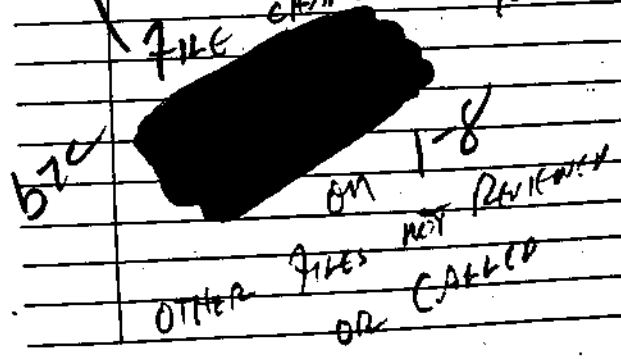 FILE
b7c
ON 1-8
OTHER FILES NOT REVIEWED
OR CALLED